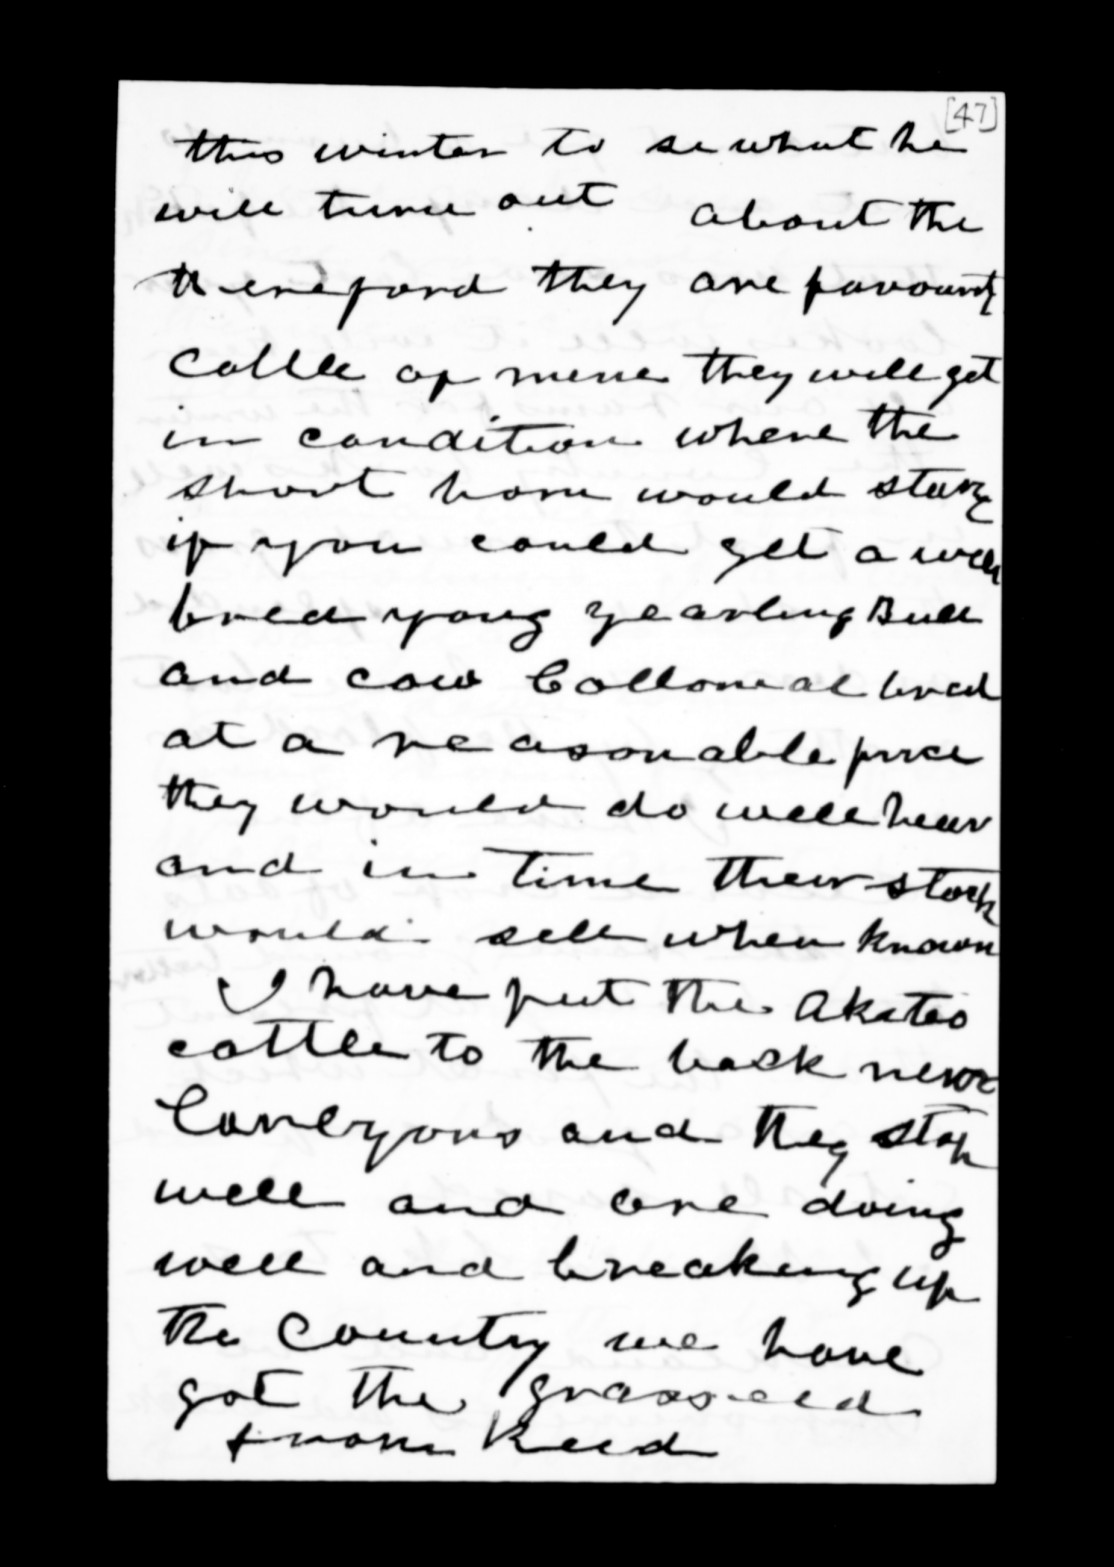 [47]
this winter to se what he
will turn out about the
Hereford they are favourit
Cattle of mine they will get
in condition where the
short horn would starve
if you could get a well
bred young yearling Bull
and cow Collonial bred
at a reasonable price
they would do well hear
and in time their stock
would sell when known
I have put the Akatio
cattle to the back near
and they stop
well and are doing
well and breaking up
the Country we have
got the grasseed
from Reid